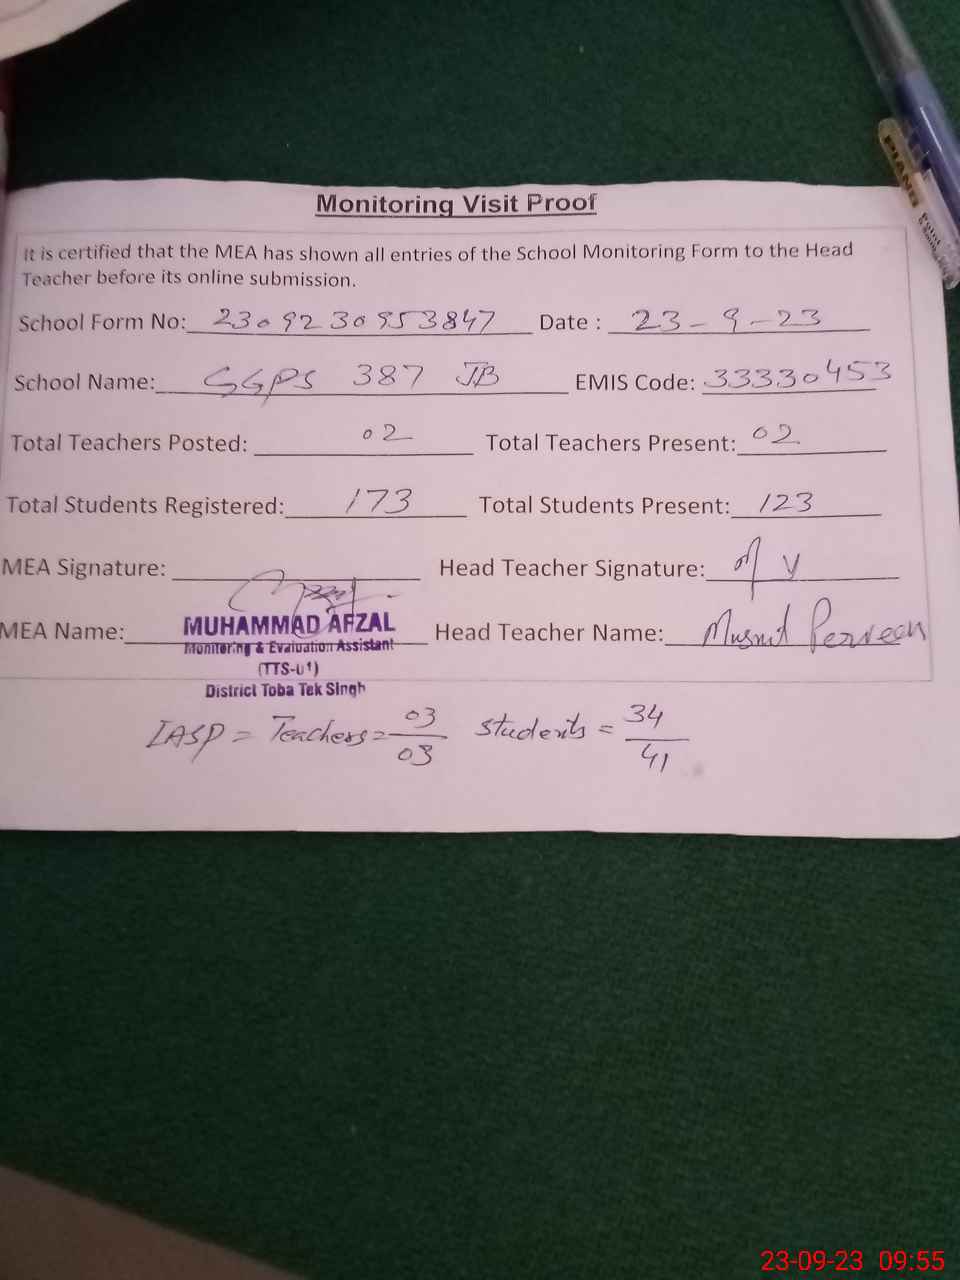 Monitoring Visit Proof
It is certified that the MEA has shown all entries of the School Monitoring Form to the Head
Teacher before its online submission.
School Form No: 2309230953847 Date : 23-9-23
School Name: GGPS 387 JB EMIS Code: 33330453
Total Teachers Posted: 02 Total Teachers Present: 02
Total Students Registered: 173 Total Students Present: 123
MEA Signature: Head Teacher Signature:
MEA Name: MUHAMMAD AFZAL Head Teacher Name: Perveen
Monitoring & Evaluation Assistant
(TTS-01)
District Toba Tek Singh
IASP = Teachers = 03/03 Students = 34/41
PIANO
Point
23-09-23 09:55